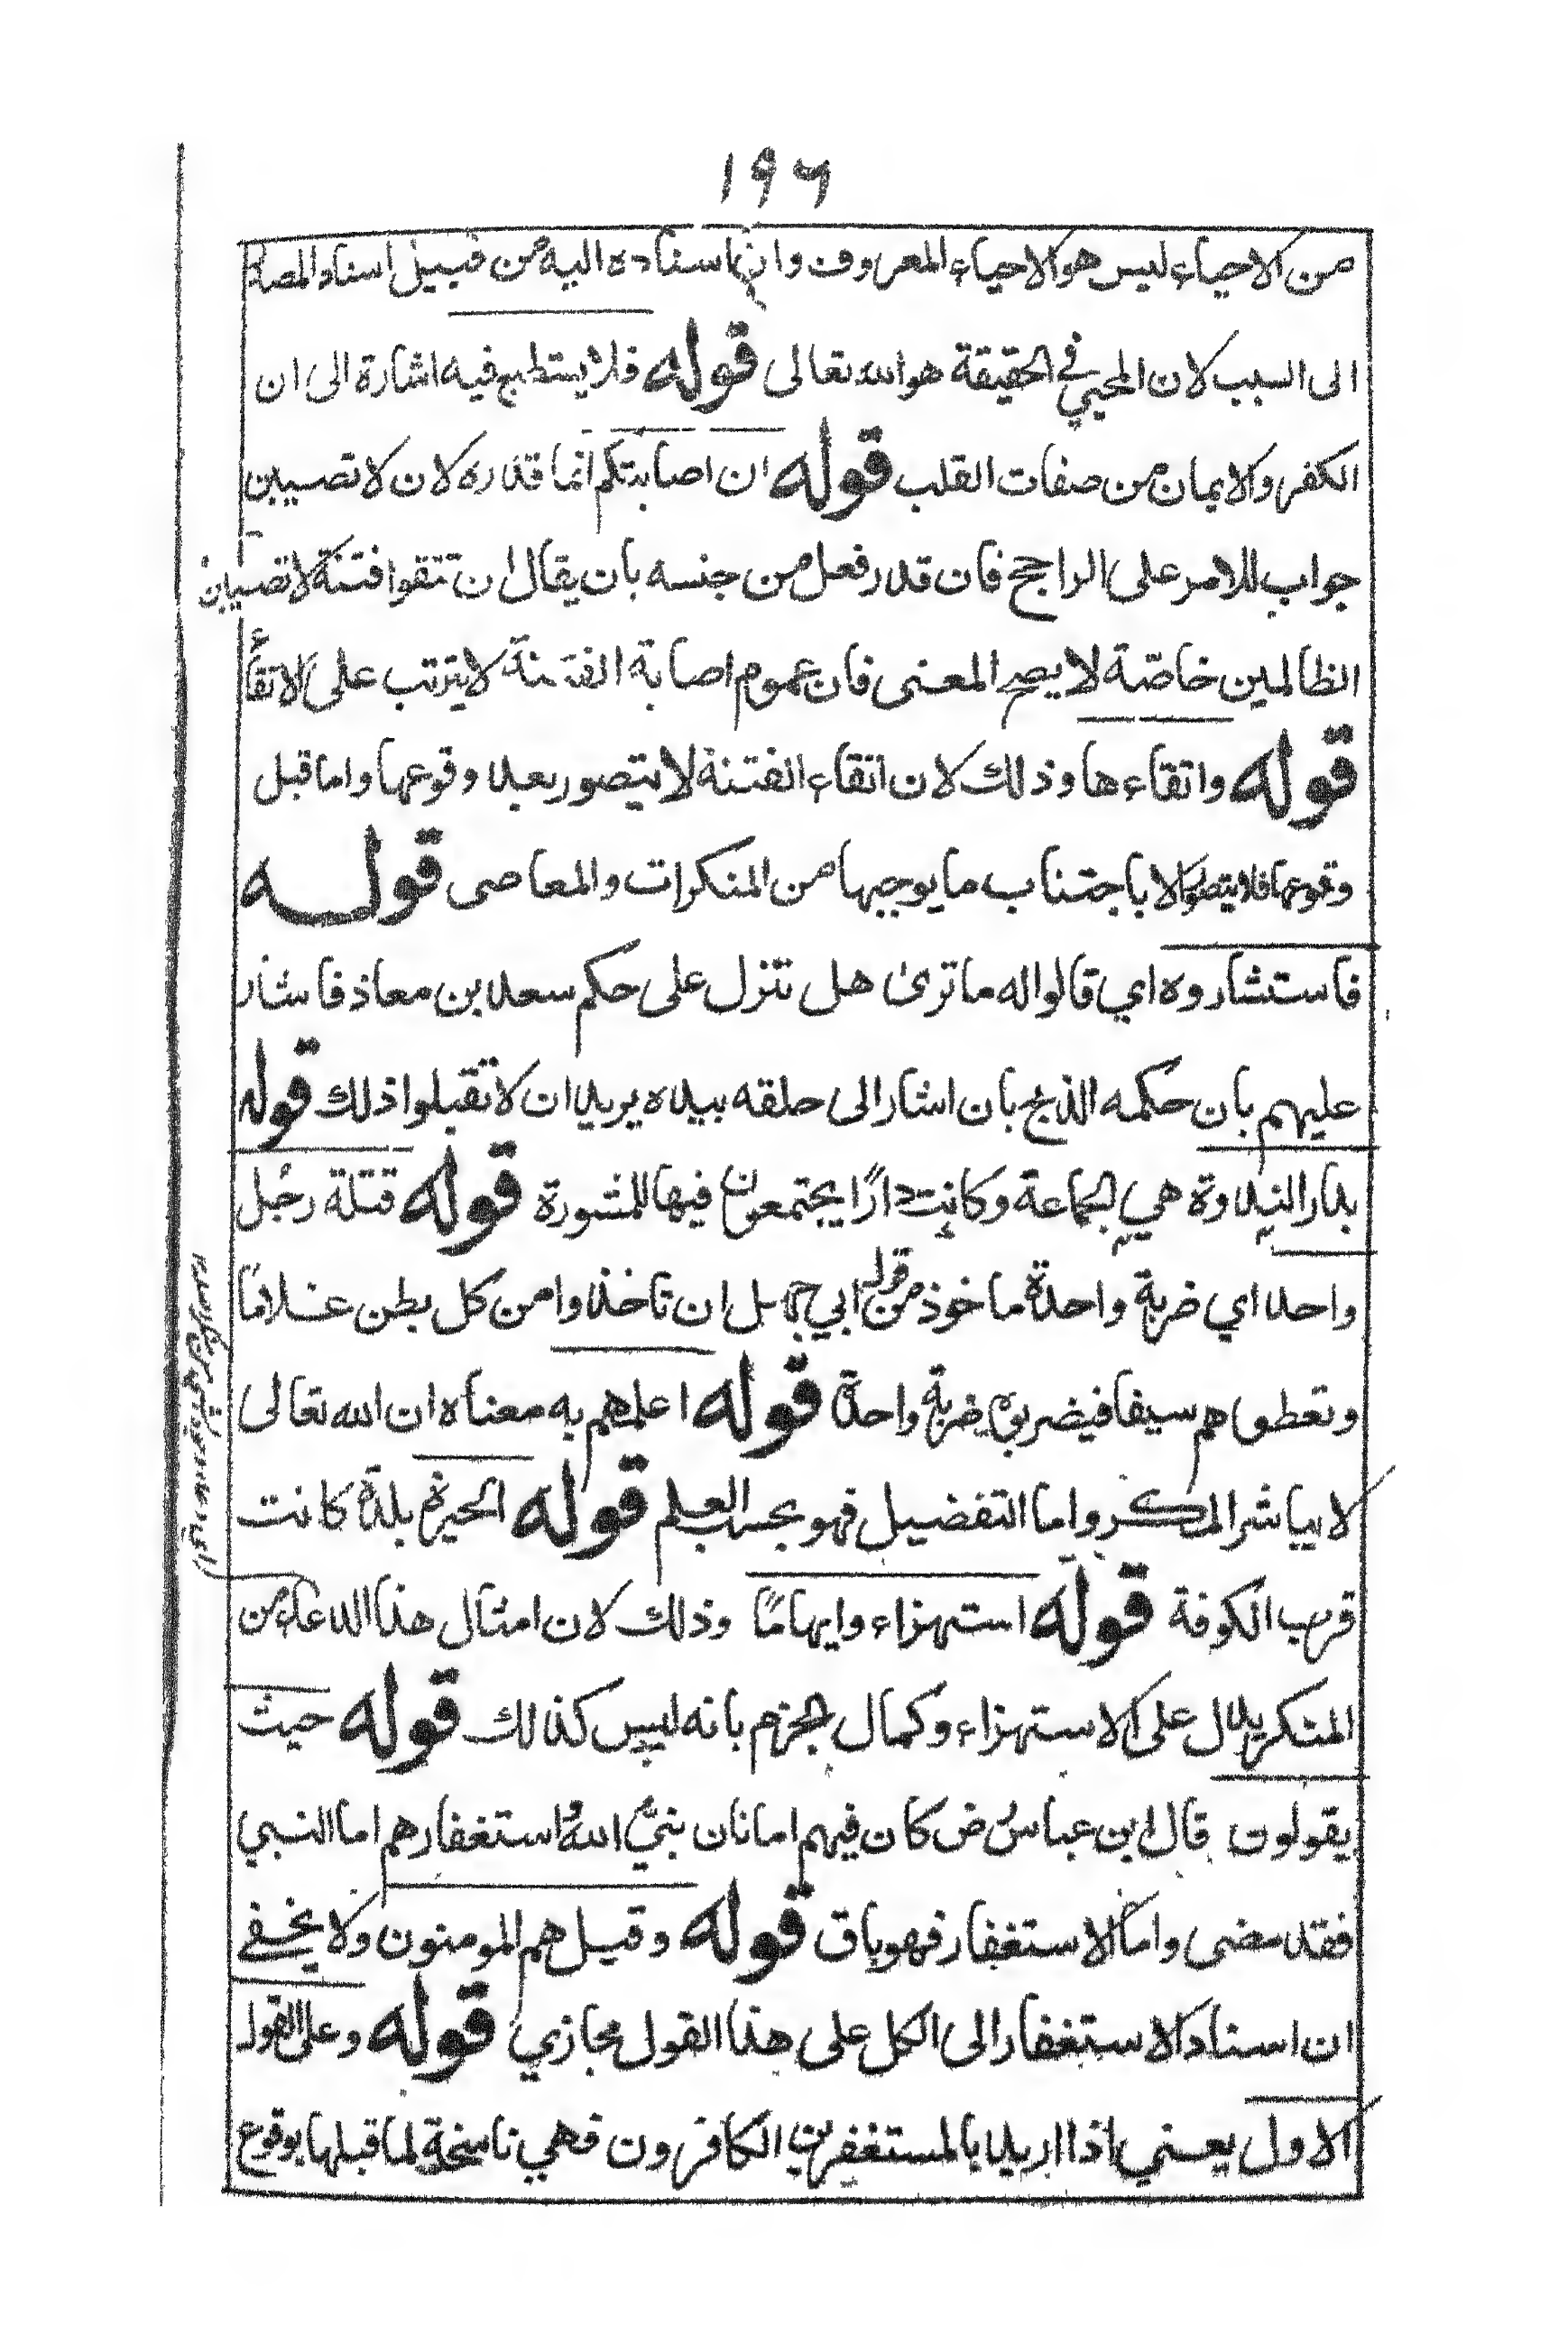 ١٩٦
من الاحياء ليس هو الاحياء المعروف وانما اسناده اليه من قبيل اسناد المصدر
الى السبب لان المحيي في الحقيقة هو الله تعالى قوله فلا يستطيع فيه اشارة الى ان
الكفر والايمان من صفات القلب قوله ان اصابتكم انما قدره لان لا تصيبن
جواب للامر على الراجح فان قدر فعل من جنسه بان يقال ان تتقوا فتنة لا تصيبن
الظالمين خاصّة لا يصح المعنى فان عموم اصابة الفتنة لا يترتب على الاتقاء
قوله واتقاءها وذلك لان اتقاء الفتنة لا يتصور بعد وقوعها واما قبل
وقوعها فلا يتصور الا باجتناب ما يوجبها من المنكرات والمعاصى قوله
فاستشاروه اي قالوا له ما ترى هل نتزل على حكم سعد بن معاذ فاشار
عليهم بان حكمه الذبح بان اشار الى حلقه بيده يريد ان لا تقبلوا ذلك قوله
بدار الندوة هي الجماعة وكانت دارًا يجتمعون فيها للمشورة قوله قتلة رجُل
واحد اي ضربة واحدة ماخوذ من قول ابي جهل ان تاخذوا من كل بطن غلامًا
وتعطوهم سيفا فيضربوه ضربة واحدة قوله اعلمهم به معناه ان الله تعالى
لا يباشر المكر واما التفضيل فهو بحسب العلم قوله الحيرة هم بلدة كانت
قرب الكوفة قوله استهزاء وايهامًا وذلك لان امثال هذا الدعاء من
المنكر يدل على الاستهزاء وكمال الجزم بانه ليس كذالك قوله حيث
يقولون قال ابن عباس رض كان فيهم امانان نبيُّ اللهُ استغفارهم اما النبي
فقد مضى واما الاستغفار فهو باق قوله وقيل هم المومنون ولا يخفى
ان اسناد الاستغفار الى الكل على هذا القول مجازي قوله وعلى القول
الاول يعني اذا اريد بالمستغفرين الكافرون فهي ناسخة لما قبلها بوقوع